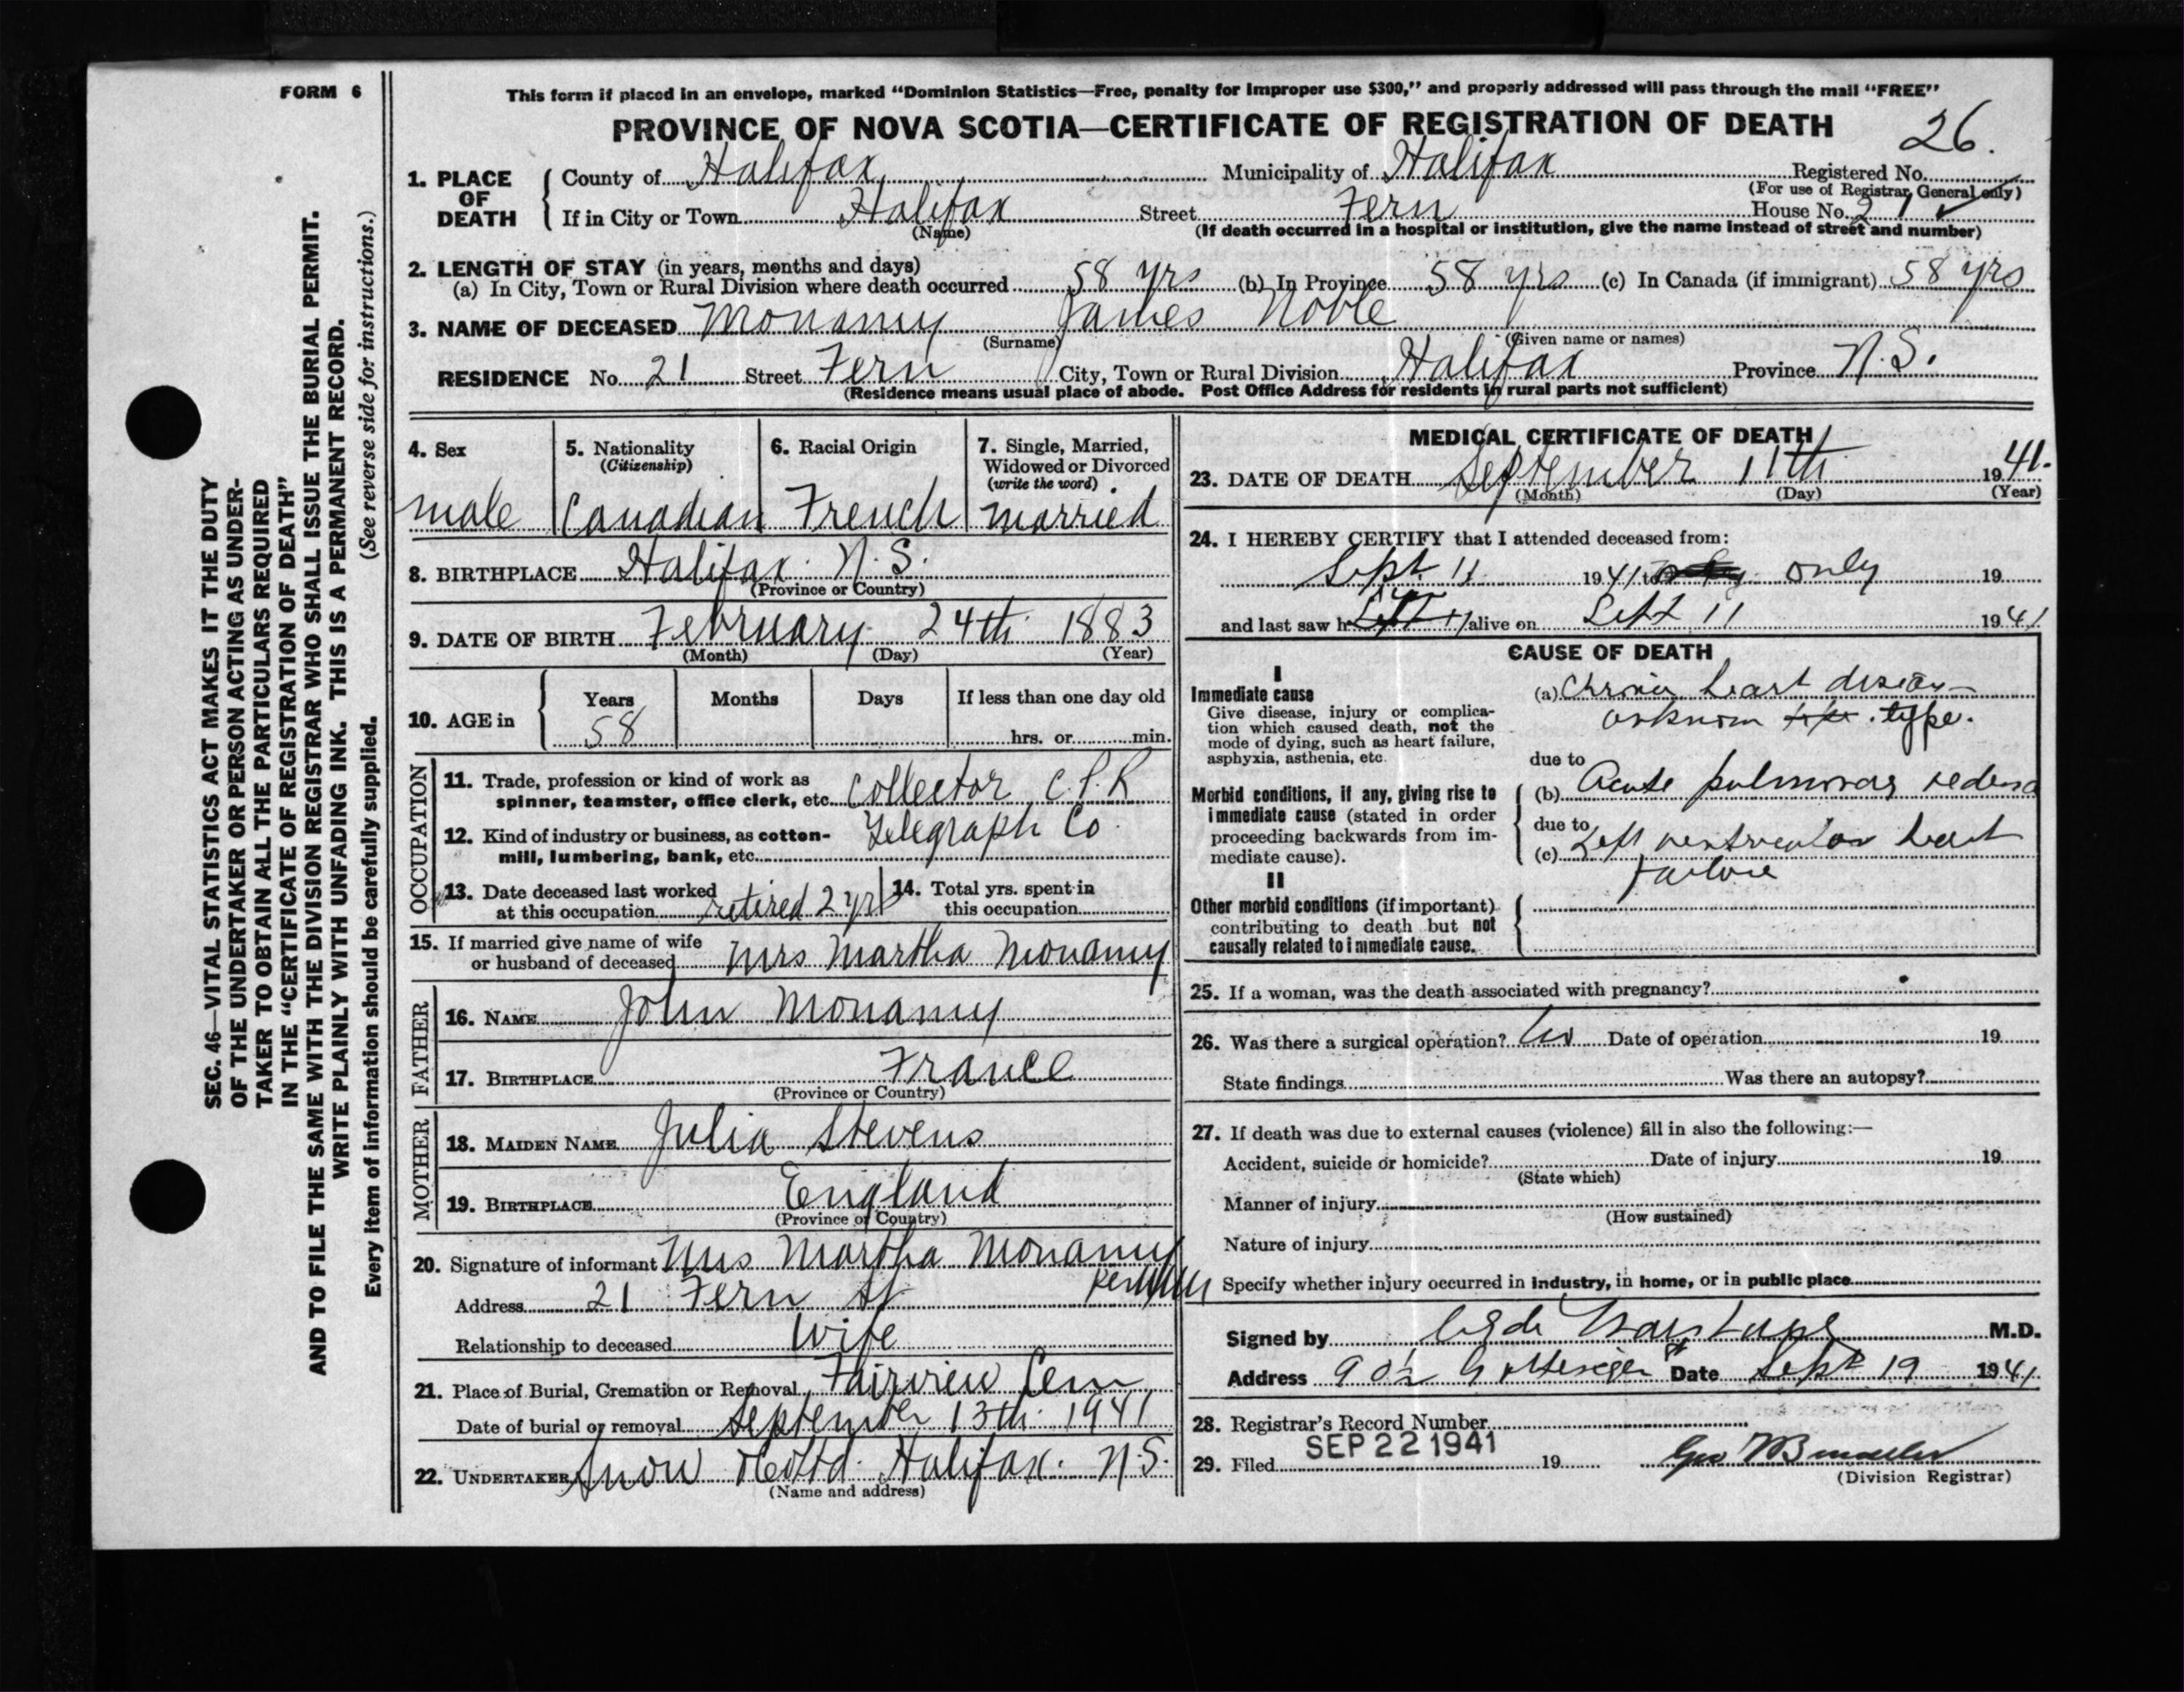 FORM 6
This form if placed in an envelope, marked "Dominion Statistics—Free, penalty for improper use $300," and properly addressed will pass through the mail "FREE"
PROVINCE OF NOVA SCOTIA—CERTIFICATE OF REGISTRATION OF DEATH
26.
1. PLACE OF DEATH
County of Halifax Municipality of Halifax Registered No.
(For use of Registrar General only)
If in City or Town Halifax Street Fern House No. 21
(Name) (If death occurred in a hospital or institution, give the name instead of street and number)
2. LENGTH OF STAY (in years, months and days)
(a) In City, Town or Rural Division where death occurred 58 yrs (b) In Province 58 yrs (c) In Canada (if immigrant) 58 yrs
3. NAME OF DECEASED Monamy James Noble
(Surname) (Given name or names)
RESIDENCE No. 21 Street Fern City, Town or Rural Division Halifax Province N.S.
(Residence means usual place of abode. Post Office Address for residents in rural parts not sufficient)
SEC. 46—VITAL STATISTICS ACT MAKES IT THE DUTY
OF THE UNDERTAKER OR PERSON ACTING AS UNDER-
TAKER TO OBTAIN ALL THE PARTICULARS REQUIRED
IN THE "CERTIFICATE OF REGISTRATION OF DEATH"
AND TO FILE THE SAME WITH THE DIVISION REGISTRAR WHO SHALL ISSUE THE BURIAL PERMIT.
WRITE PLAINLY WITH UNFADING INK. THIS IS A PERMANENT RECORD.
Every item of information should be carefully supplied. (See reverse side for instructions.)
4. Sex
male
5. Nationality
(Citizenship)
Canadian
6. Racial Origin
French
7. Single, Married,
Widowed or Divorced
(write the word)
married
8. BIRTHPLACE Halifax N.S.
(Province or Country)
9. DATE OF BIRTH February 24th 1883
(Month) (Day) (Year)
10. AGE in
Years Months Days If less than one day old
58 hrs. or min.
OCCUPATION
11. Trade, profession or kind of work as
spinner, teamster, office clerk, etc. Collector C.P.R
12. Kind of industry or business, as cotton-
mill, lumbering, bank, etc. Telegraph Co.
13. Date deceased last worked
at this occupation retired 2 yrs
14. Total yrs. spent in
this occupation
15. If married give name of wife
or husband of deceased Mrs Martha Monamy
FATHER
16. NAME John Monamy
17. BIRTHPLACE France
(Province or Country)
MOTHER
18. MAIDEN NAME Julia Stevens
19. BIRTHPLACE England
(Province or Country)
20. Signature of informant Mrs Martha Monamy
Address 21 Fern St
Relationship to deceased Wife
21. Place of Burial, Cremation or Removal Fairview Cem
Date of burial or removal September 13th 1941
22. UNDERTAKER Snow & Co Ltd. Halifax. N.S.
(Name and address)
MEDICAL CERTIFICATE OF DEATH
23. DATE OF DEATH September 11th 1941.
(Month) (Day) (Year)
24. I HEREBY CERTIFY that I attended deceased from:
Sept. 11 1941 to only 19
and last saw h alive on Sept 11 1941
CAUSE OF DEATH
I
Immediate cause
Give disease, injury or complica-
tion which caused death, not the
mode of dying, such as heart failure,
asphyxia, asthenia, etc.
(a) Chronic heart disease
unknown type.
due to
Morbid conditions, if any, giving rise to
immediate cause (stated in order
proceeding backwards from im-
mediate cause).
(b) Acute pulmonary oedema
due to
(c) Left ventricular heart
failure
II
Other morbid conditions (if important)
contributing to death but not
causally related to immediate cause.
25. If a woman, was the death associated with pregnancy?
26. Was there a surgical operation? no Date of operation 19
State findings Was there an autopsy?
27. If death was due to external causes (violence) fill in also the following:—
Accident, suicide or homicide? Date of injury 19
(State which)
Manner of injury
(How sustained)
Nature of injury
Specify whether injury occurred in industry, in home, or in public place
Signed by M.D.
Address Date Sept 19 1941
28. Registrar's Record Number
29. Filed SEP 22 1941 19
(Division Registrar)